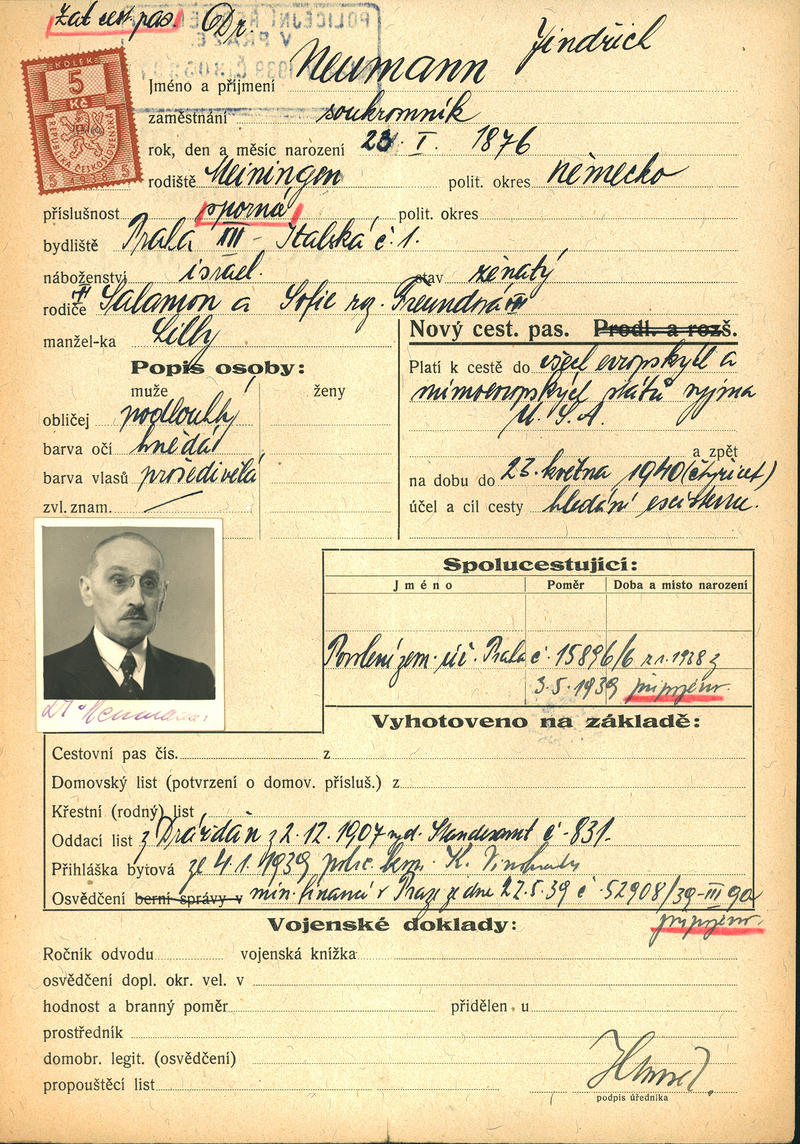 Zat. cest. pas.
Dr.
POLICEJNÍ ŘEDITEL
V PRAZE
KOLEK
5
Kč
REPUBLIKA ČESKOSLOVENSKÁ
5 1938 5
Jméno a příjmení Neumann Jindřich
zaměstnání soukromník
rok, den a měsíc narození 23. I. 1876
rodiště Meiningen polit. okres Německo
příslušnost sporná polit. okres
bydliště Praha XII - Italská č. 1.
náboženství israel. stav ženatý
rodiče Salamon a Sofie roz. Freundová
manžel-ka Lilly
Nový cest. pas. Prodl. a rozš.
Popis osoby:
muže ženy
obličej podlouhlý
barva očí hnědá
barva vlasů prošedivělá
zvl. znam. —
Platí k cestě do všech evropských a
mimoevropských států vyjma
U.S.A.
a zpět
na dobu do 23. května 1940 (čtyřicet)
účel a cíl cesty hledání existence.
Spolucestující:
Jméno Poměr Doba a místo narození
Povolení zem. úř. Praha č. 15896/6 z r. 1938 z
3.5.1939 připojeno.
Dr Neumann
Vyhotoveno na základě:
Cestovní pas čís. z
Domovský list (potvrzení o domov. přísluš.) z
Křestní (rodný) list
Oddací list z Drážďan z 2.12.1907 vyd. Standesamt č. 831.
Přihláška bytová ze 4.1.1939 polic. kom. K. Vinohrady
Osvědčení berní správy v min. financí v Praze ze dne 22.5.39 č. 52908/39-III
připojeno.
Vojenské doklady:
Ročník odvodu vojenská knížka
osvědčení dopl. okr. vel. v
hodnost a branný poměr přidělen u
prostředník
domobr. legit. (osvědčení)
propouštěcí list
podpis úředníka